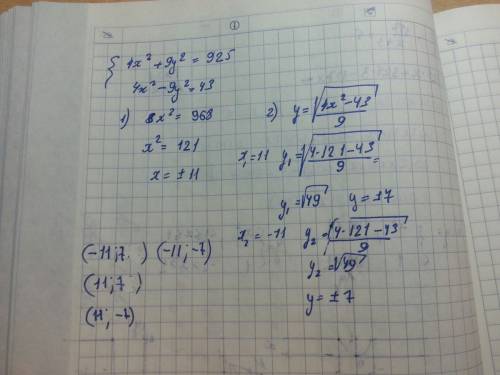 ①
{ 4x² + 9y² = 925
4x² - 9y² = 43
1) 8x² = 968
x² = 121
x = ± 11
2) y = √(4x² - 43)/9
x₁ = 11 y₁ = √(4·121 - 43)/9 =
y₁ = √49 y = ±7
x₂ = -11 y₂ = √(4·121 - 43)/9
y₂ = √49
y = ± 7
(-11; 7) (-11; -7)
(11; 7)
(11; -7)